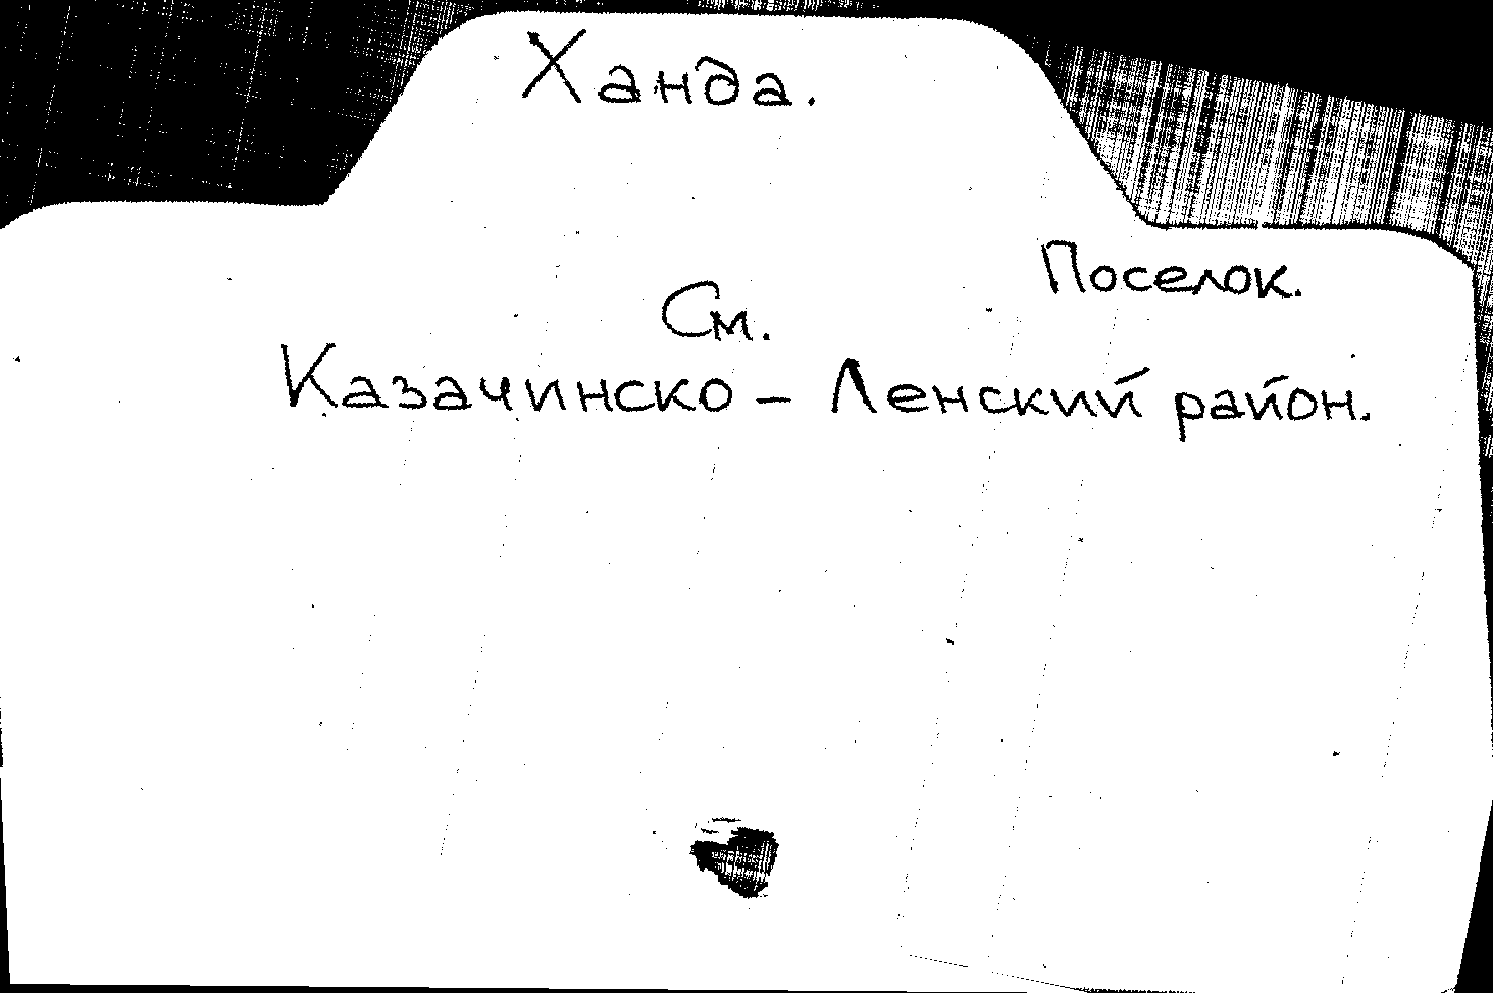 Ханда.
Поселок.
См.
Казачинско – Ленский район.